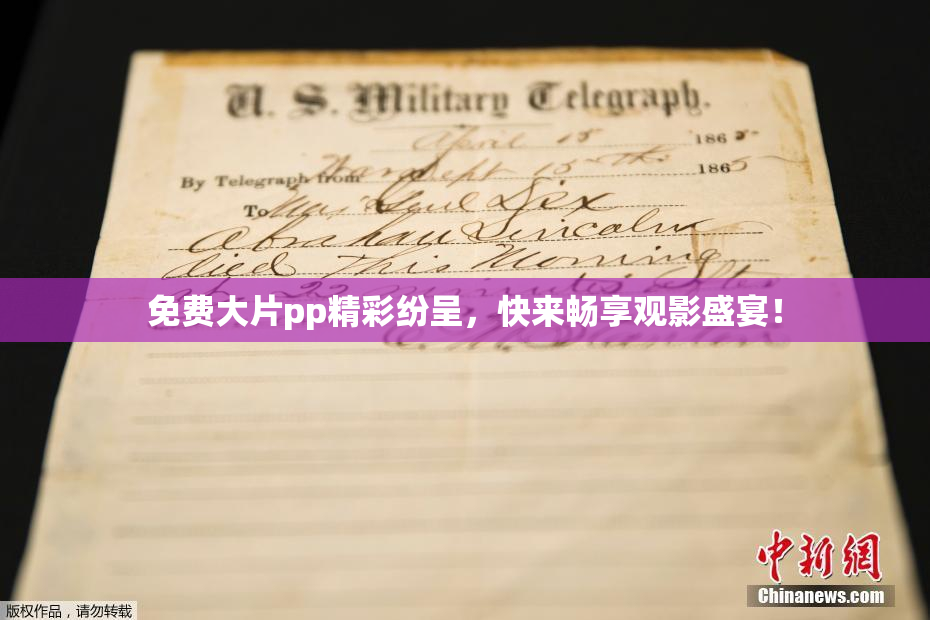 U. S. Military Telegraph.
April 15 1865
By Telegraph from War Dept 15th 1865
To Maj Genl Dix
Abraham Lincoln
died This Morning
at 22 minutes after
免费大片pp精彩纷呈，快来畅享观影盛宴！
中新网
版权作品，请勿转载
Chinanews.com